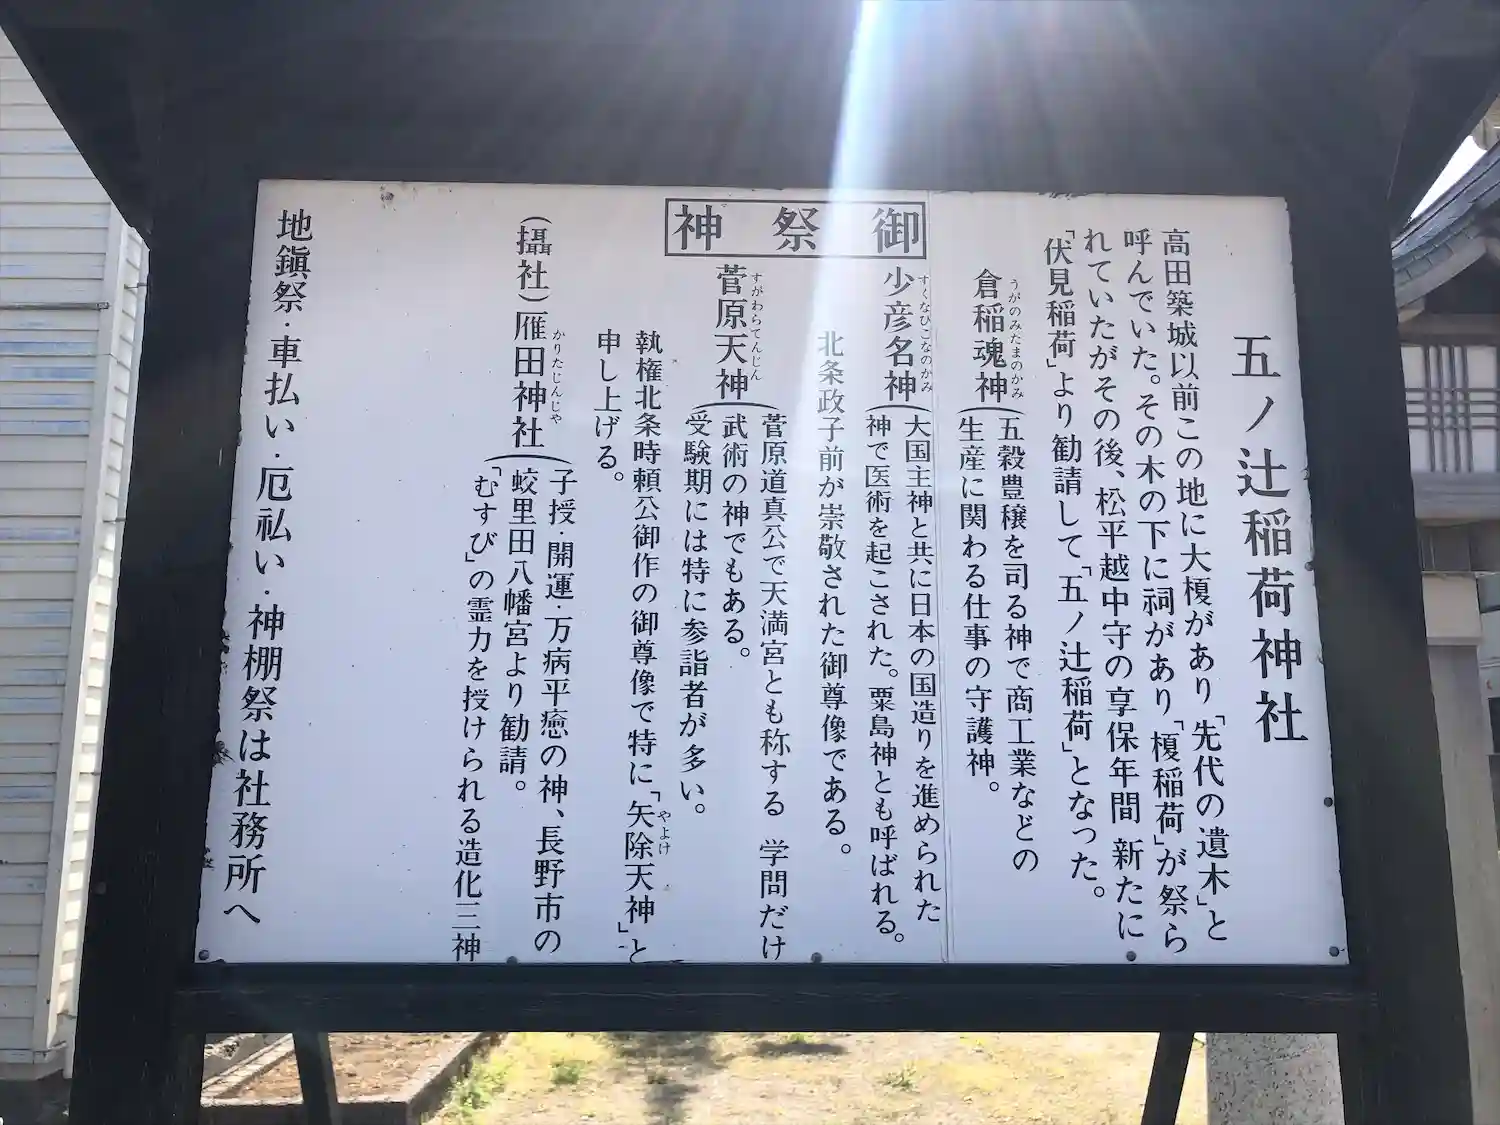 五ノ辻稲荷神社
高田築城以前この地に大榎があり「先代の遺木」と
呼んでいた。その木の下に祠があり「榎稲荷」が祭ら
れていたがその後、松平越中守の享保年間 新たに
「伏見稲荷」より勧請して「五ノ辻稲荷」となった。
御祭神
うがのみたまのかみ
倉稲魂神
五穀豊穣を司る神で商工業などの
生産に関わる仕事の守護神。
すくなひこなのかみ
少彦名神
大国主神と共に日本の国造りを進められた
神で医術を起こされた。粟島神とも呼ばれる。
北条政子前が崇敬された御尊像である。
すがわらてんじん
菅原天神
菅原道真公で天満宮とも称する 学問だけ
武術の神でもある。
受験期には特に参詣者が多い。
執権北条時頼公御作の御尊像で特に「矢除天神」と
やよけ
申し上げる。
(攝社)雁田神社
かりたじんじゃ
子授・開運・万病平癒の神、長野市の
蛟里田八幡宮より勧請。
「むすび」の霊力を授けられる造化三神
地鎭祭・車払い・厄払い・神棚祭は社務所へ